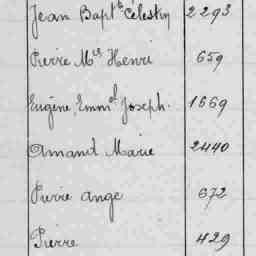 Jean Bapte Célestin 2293
Pierre Me Henri 659
Eugène, Emml Joseph. 1669
Amand Marie 2440
Pierre ange 672
Pierre 429